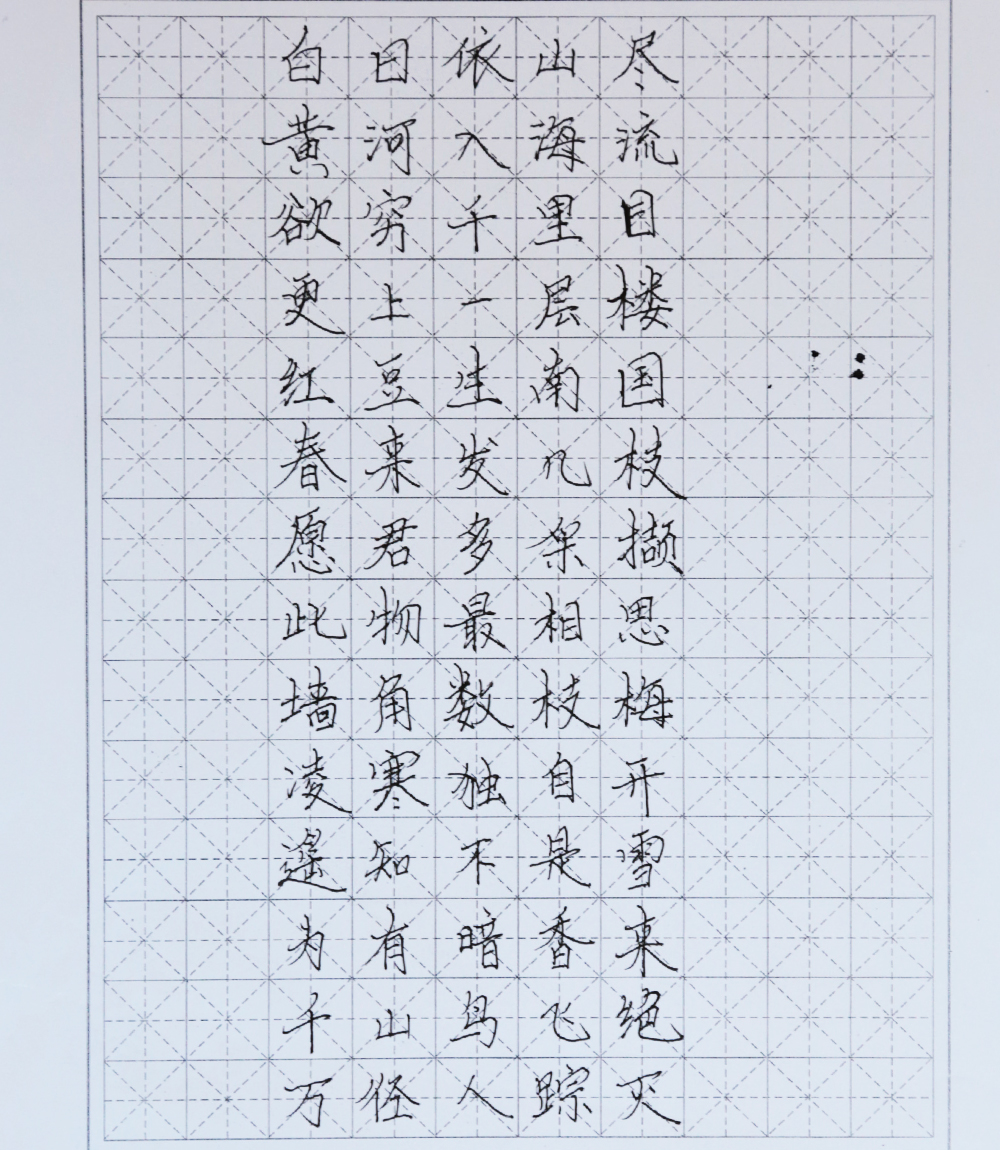 白日依山尽
黄河入海流
欲穷千里目
更上一层楼
红豆生南国
春来发几枝
愿君多采撷
此物最相思
墙角数枝梅
凌寒独自开
遥知不是雪
为有暗香来
千山鸟飞绝
万径人踪灭